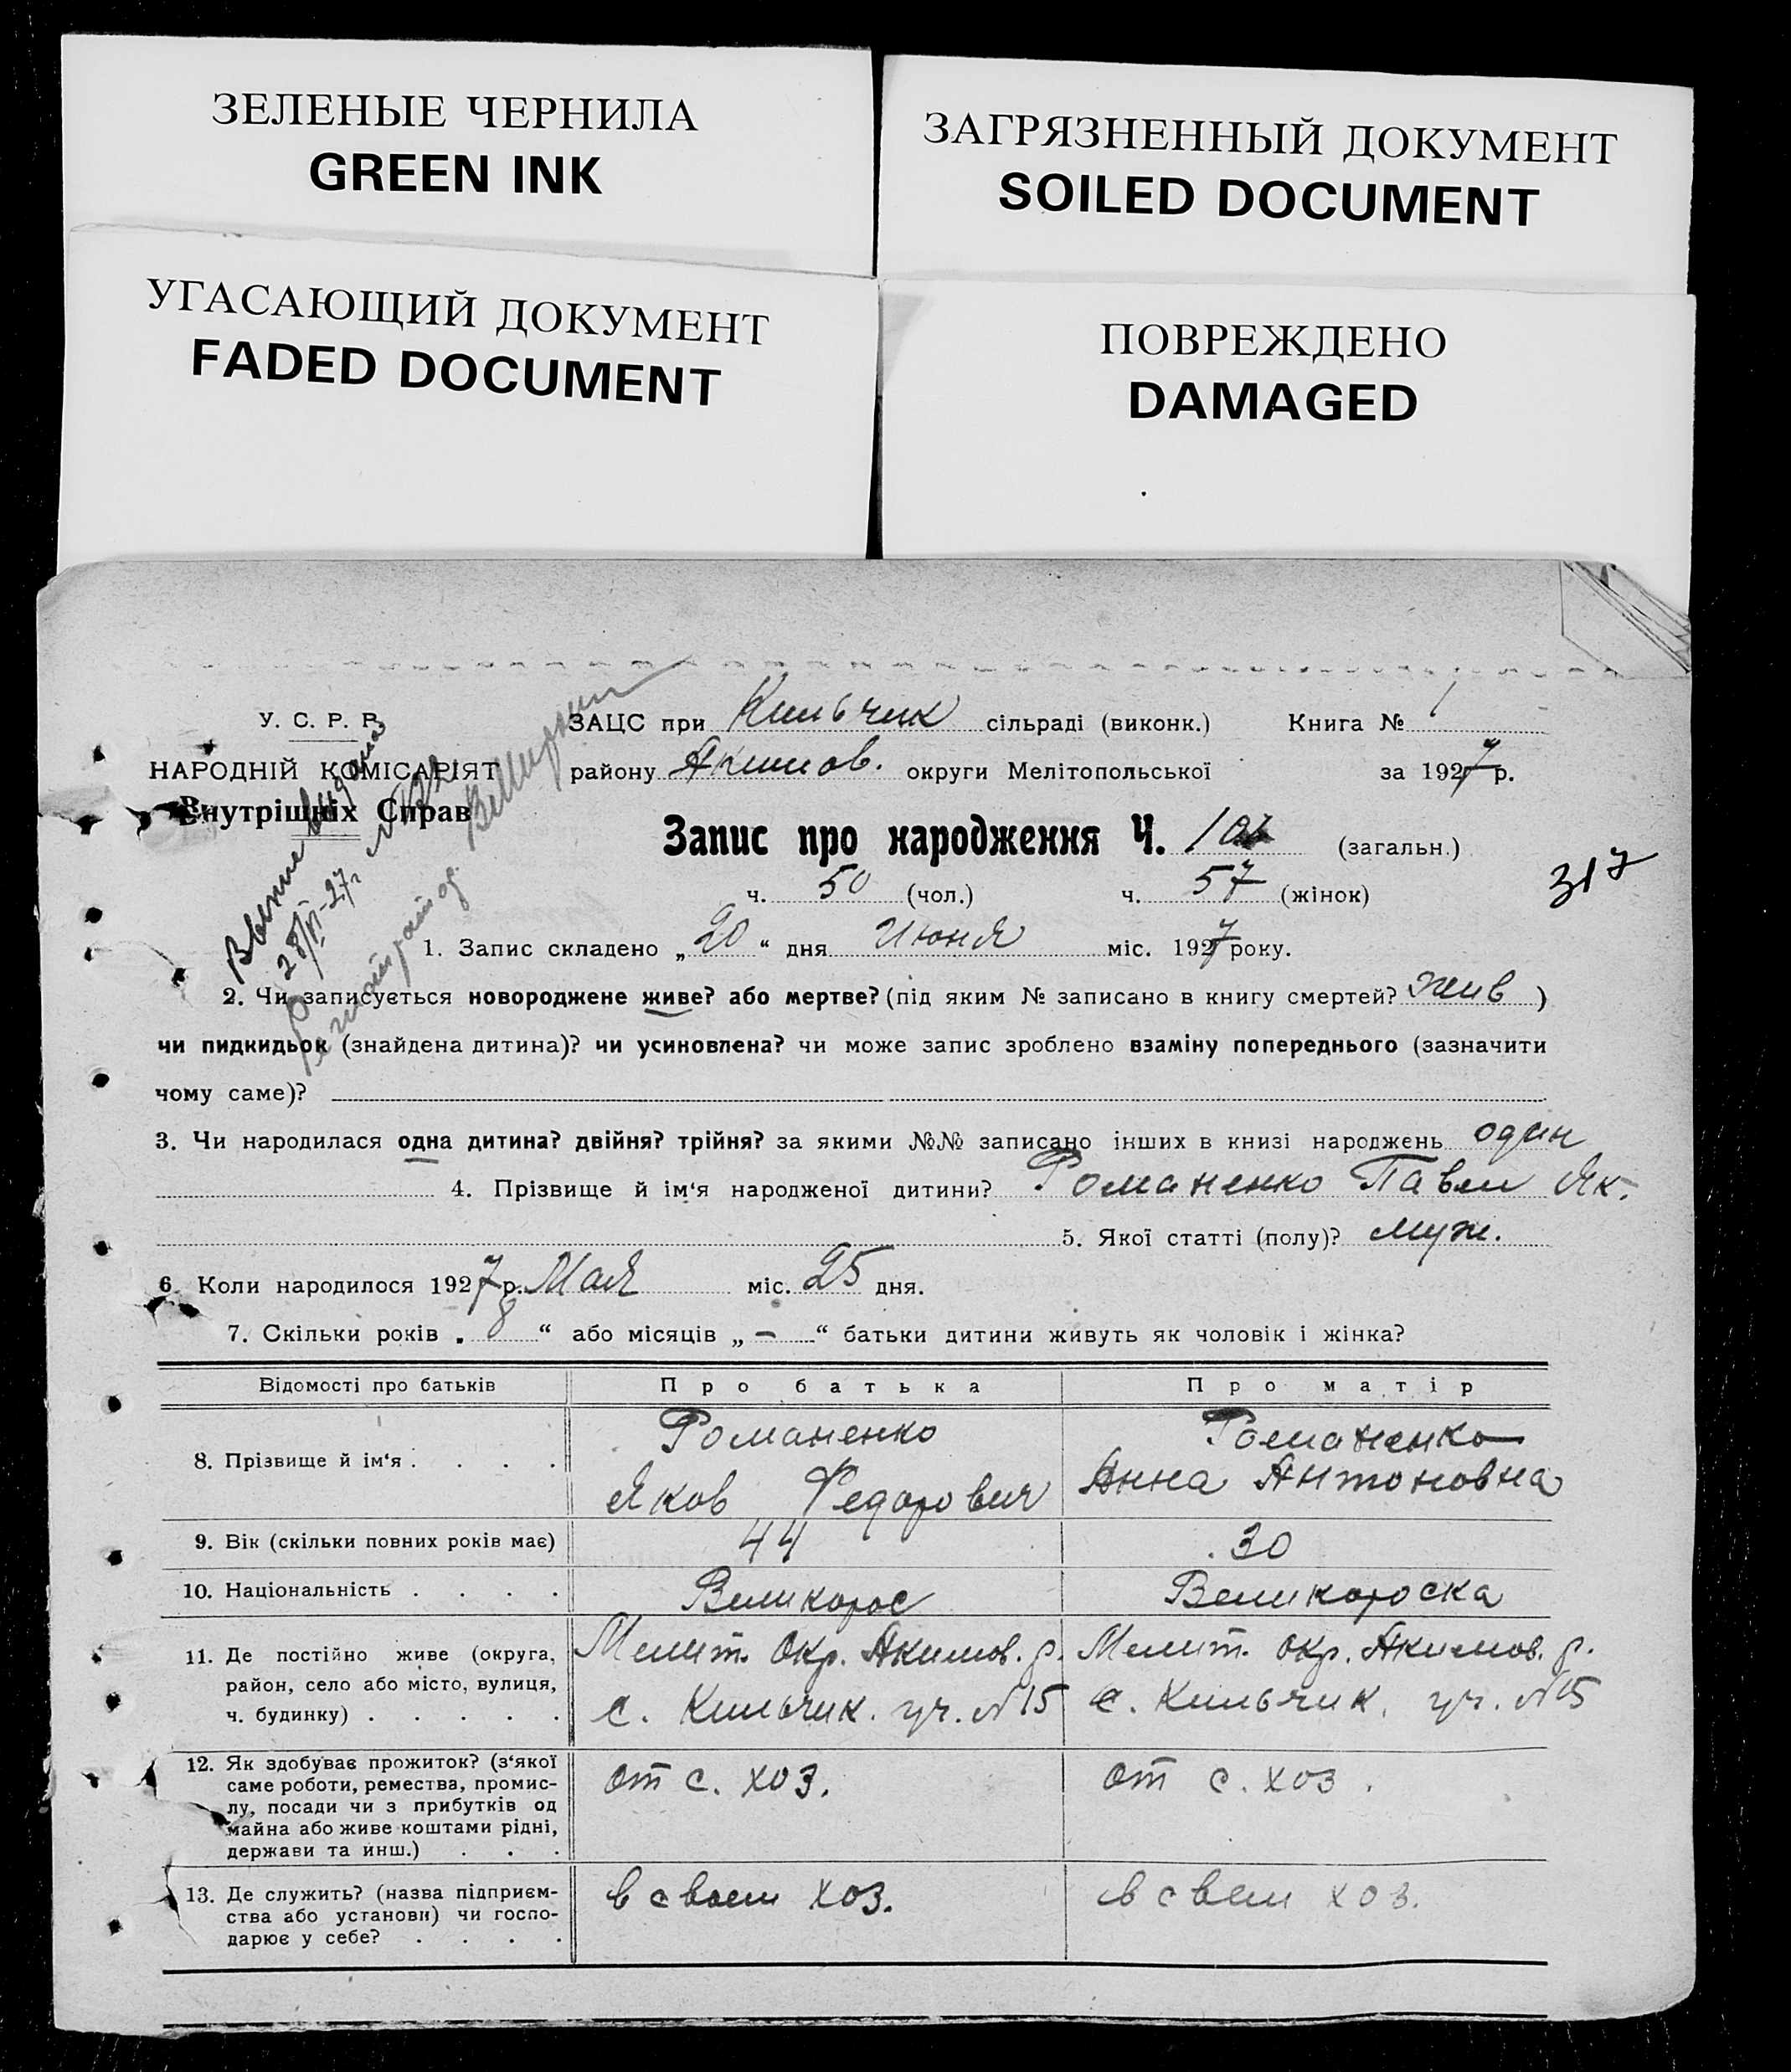 ЗЕЛЕНЫЕ ЧЕРНИЛА
GREEN INK
ЗАГРЯЗНЕННЫЙ ДОКУМЕНТ
SOILED DOCUMENT
УГАСАЮЩИЙ ДОКУМЕНТ
FADED DOCUMENT
ПОВРЕЖДЕНО
DAMAGED
У. С. Р. Р.
НАРОДНІЙ КОМІСАРІЯТ
Внутрішніх Справ
ЗАЦС при Кильчик сільраді (виконк.) Книга № 1
району Акимов. округи Мелітопольської за 1927 р.
Запис про народження Ч. (загальн.)
ч. 50 (чол.) ч. 57 (жінок)
317
28/VI-27г
1. Запис складено „20“ дня Июня міс. 1927 року.
2. Чи записується новороджене живе? або мертве? (під яким № записано в книгу смертей? жив )
чи пидкидьок (знайдена дитина)? чи усиновлена? чи може запис зроблено взаміну попереднього (зазначити
чому саме)?
3. Чи народилася одна дитина? двійня? трійня? за якими №№ записано інших в книзі народжень один
4. Прізвище й ім‘я народженої дитини? Романенко Павел Як.
5. Якої статті (полу)? муж.
6. Коли народилося 1927 р. Мая міс. 25 дня.
7. Скільки років „8“ або місяців „—“ батьки дитини живуть як чоловік і жінка?
Відомості про батьків Про батька Про матір
8. Прізвище й ім‘я . . . . Романенко Яков Федорович Романенко Анна Антоновна
9. Вік (скільки повних років має) 44 30
10. Національність . . . . Великорос Великороска
11. Де постійно живе (округа, Мелит. Окр. Акимов. р. Мелит. окр. Акимов. р.
район, село або місто, вулиця, с. Кильчик. уч. №15 с. Кильчик. уч. №15
ч. будинку) . . . . .
12. Як здобуває прожиток? (з‘якої от с. хоз. от с. хоз.
саме роботи, ремества, промис-
лу, посади чи з прибутків од
майна або живе коштами рідні,
держави та инш.) . . .
13. Де служить? (назва підприєм- в своем хоз. в свем хоз.
ства або установи) чи госпо-
дарює у себе? . . . .